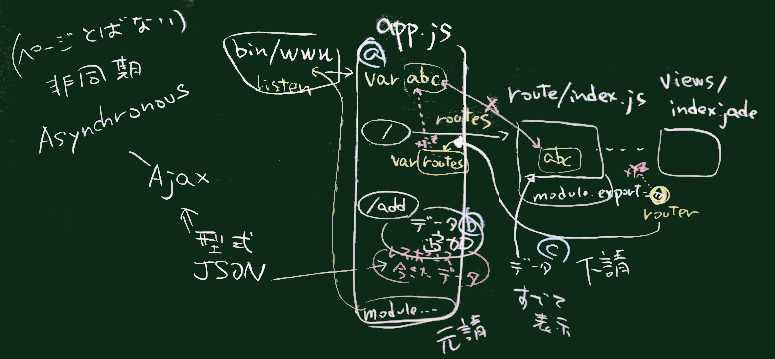 (ページとばない)
非同期
Asynchronous
Ajax
型式
JSON
bin/www
listen
app.js
a
var abc
/
routes
var routes
/add
データ b
追加
今きたデータ
module...
元請
route/index.js
abc
module.export =
router
views/
index.jade
データ c
すべて
表示
下請